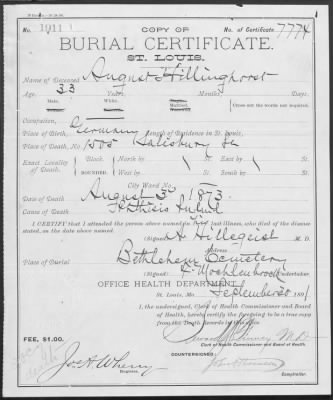 No. 10111
COPY OF
No. of Certificate 7774
BURIAL CERTIFICATE.
ST. LOUIS.
Name of Deceased August Hillinghorst
Age, 33 Years, Months, Days
Male, White, Married, Cross out the words not required.
Occupation,
Place of Birth, Germany Length of Residence in St. Louis,
Place of Death, No. 1505 Salisbury St
Exact Locality of Death. Block North by East by St.
BOUNDED. West by South by St.
City Ward No.
Date of Death August 3d 1873
Cause of Death Phthisis Pulmul
I CERTIFY that I attended the person above named in last illness, who died of the disease stated, on the date above named.
(Signed) H Hillegeist M. D.
Address
Place of Burial Bethlehem Cemetery
(Signed) Undertaker.
OFFICE HEALTH DEPARTMENT
St. Louis, Mo., September 30 1891
I, the undersigned, Clerk of Health Commissioner and Board of Health, hereby certify the foregoing to be a true copy from the Death Records in this office
M.D.
Clerk of Health Commissioner and Board of Health.
FEE, $1.00.
COUNTERSIGNED:
Jos. A. Wherry
Register.
Comptroller.